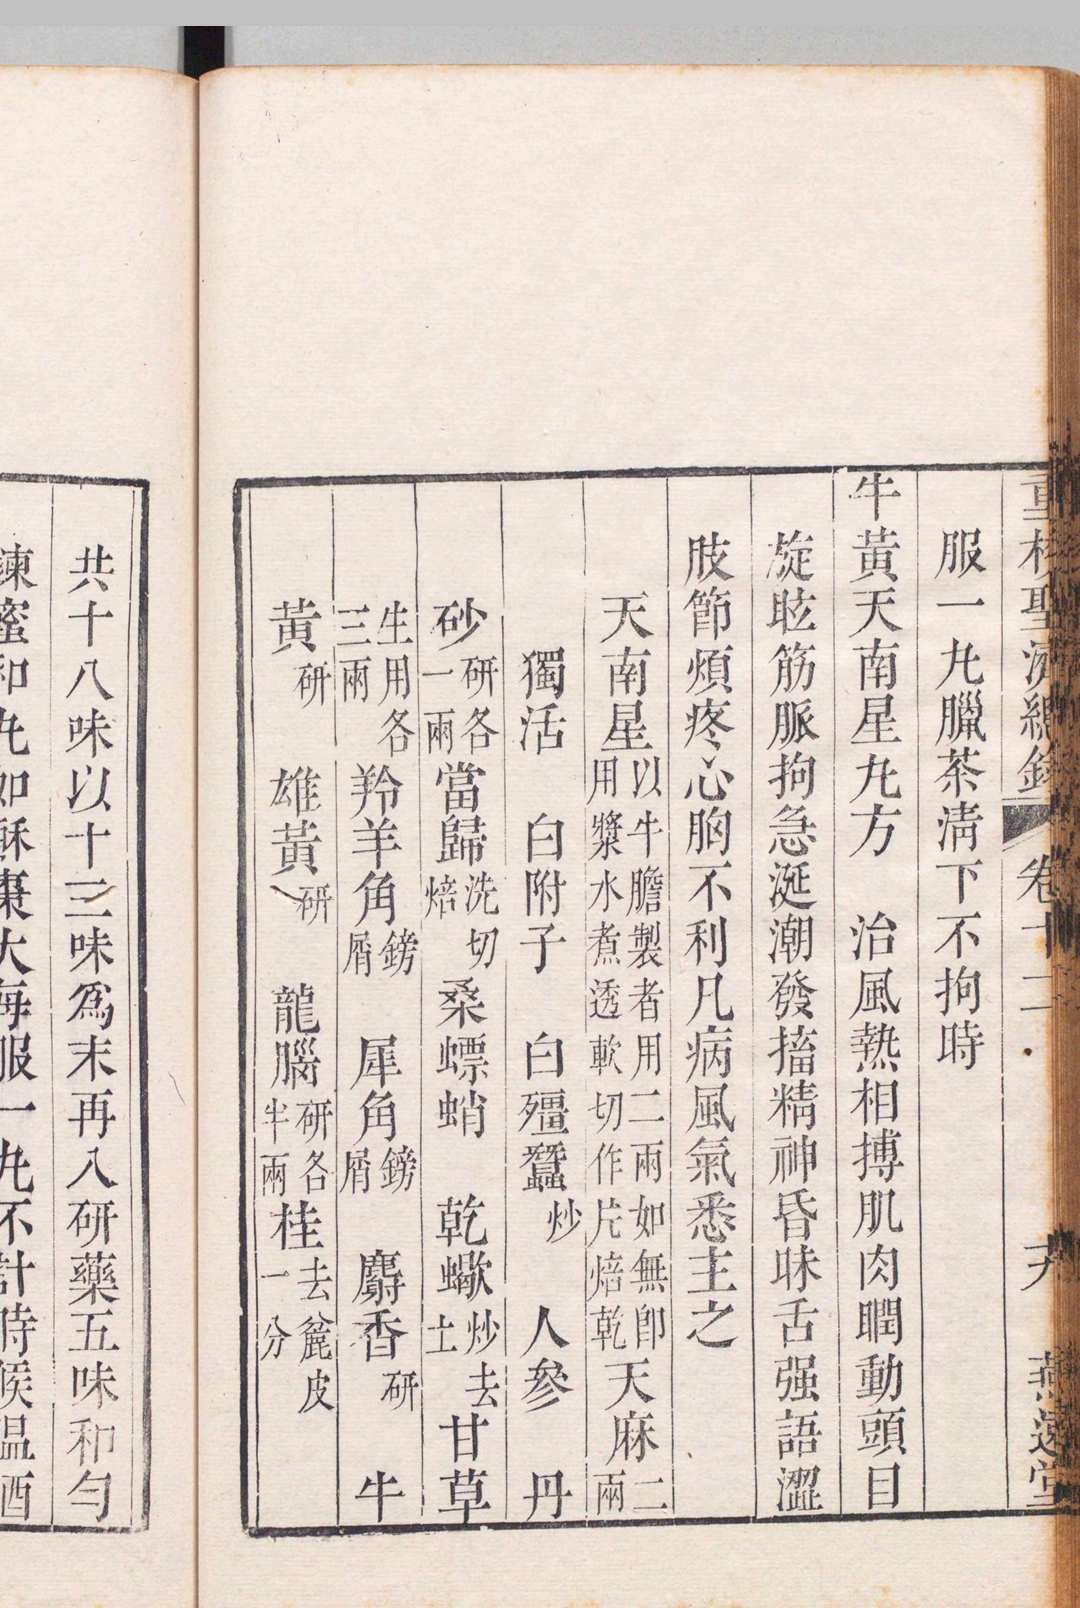 重校聖濟總錄 卷十二 燕遠堂
服一丸臘茶清下不拘時
牛黃天南星丸方 治風熱相搏肌肉瞤動頭目
旋眩筋脈拘急涎潮發搐精神昏昧舌强語澀
肢節煩疼心胸不利凡病風氣悉主之
天南星以牛膽製者用二兩如無卽用漿水煮透軟切作片焙乾 天麻二兩
獨活 白附子 白殭蠶炒 人參 丹
砂研各一兩 當歸洗切焙 桑螵蛸 乾蠍炒去土 甘草
生用各三兩 羚羊角鎊屑 犀角鎊屑 麝香研 牛
黃研 雄黃研 龍腦研各半兩 桂去麄皮一分
共十八味以十三味爲末再入研藥五味和勻
鍊蜜和丸如酥棗大每服一丸不計時候温酒